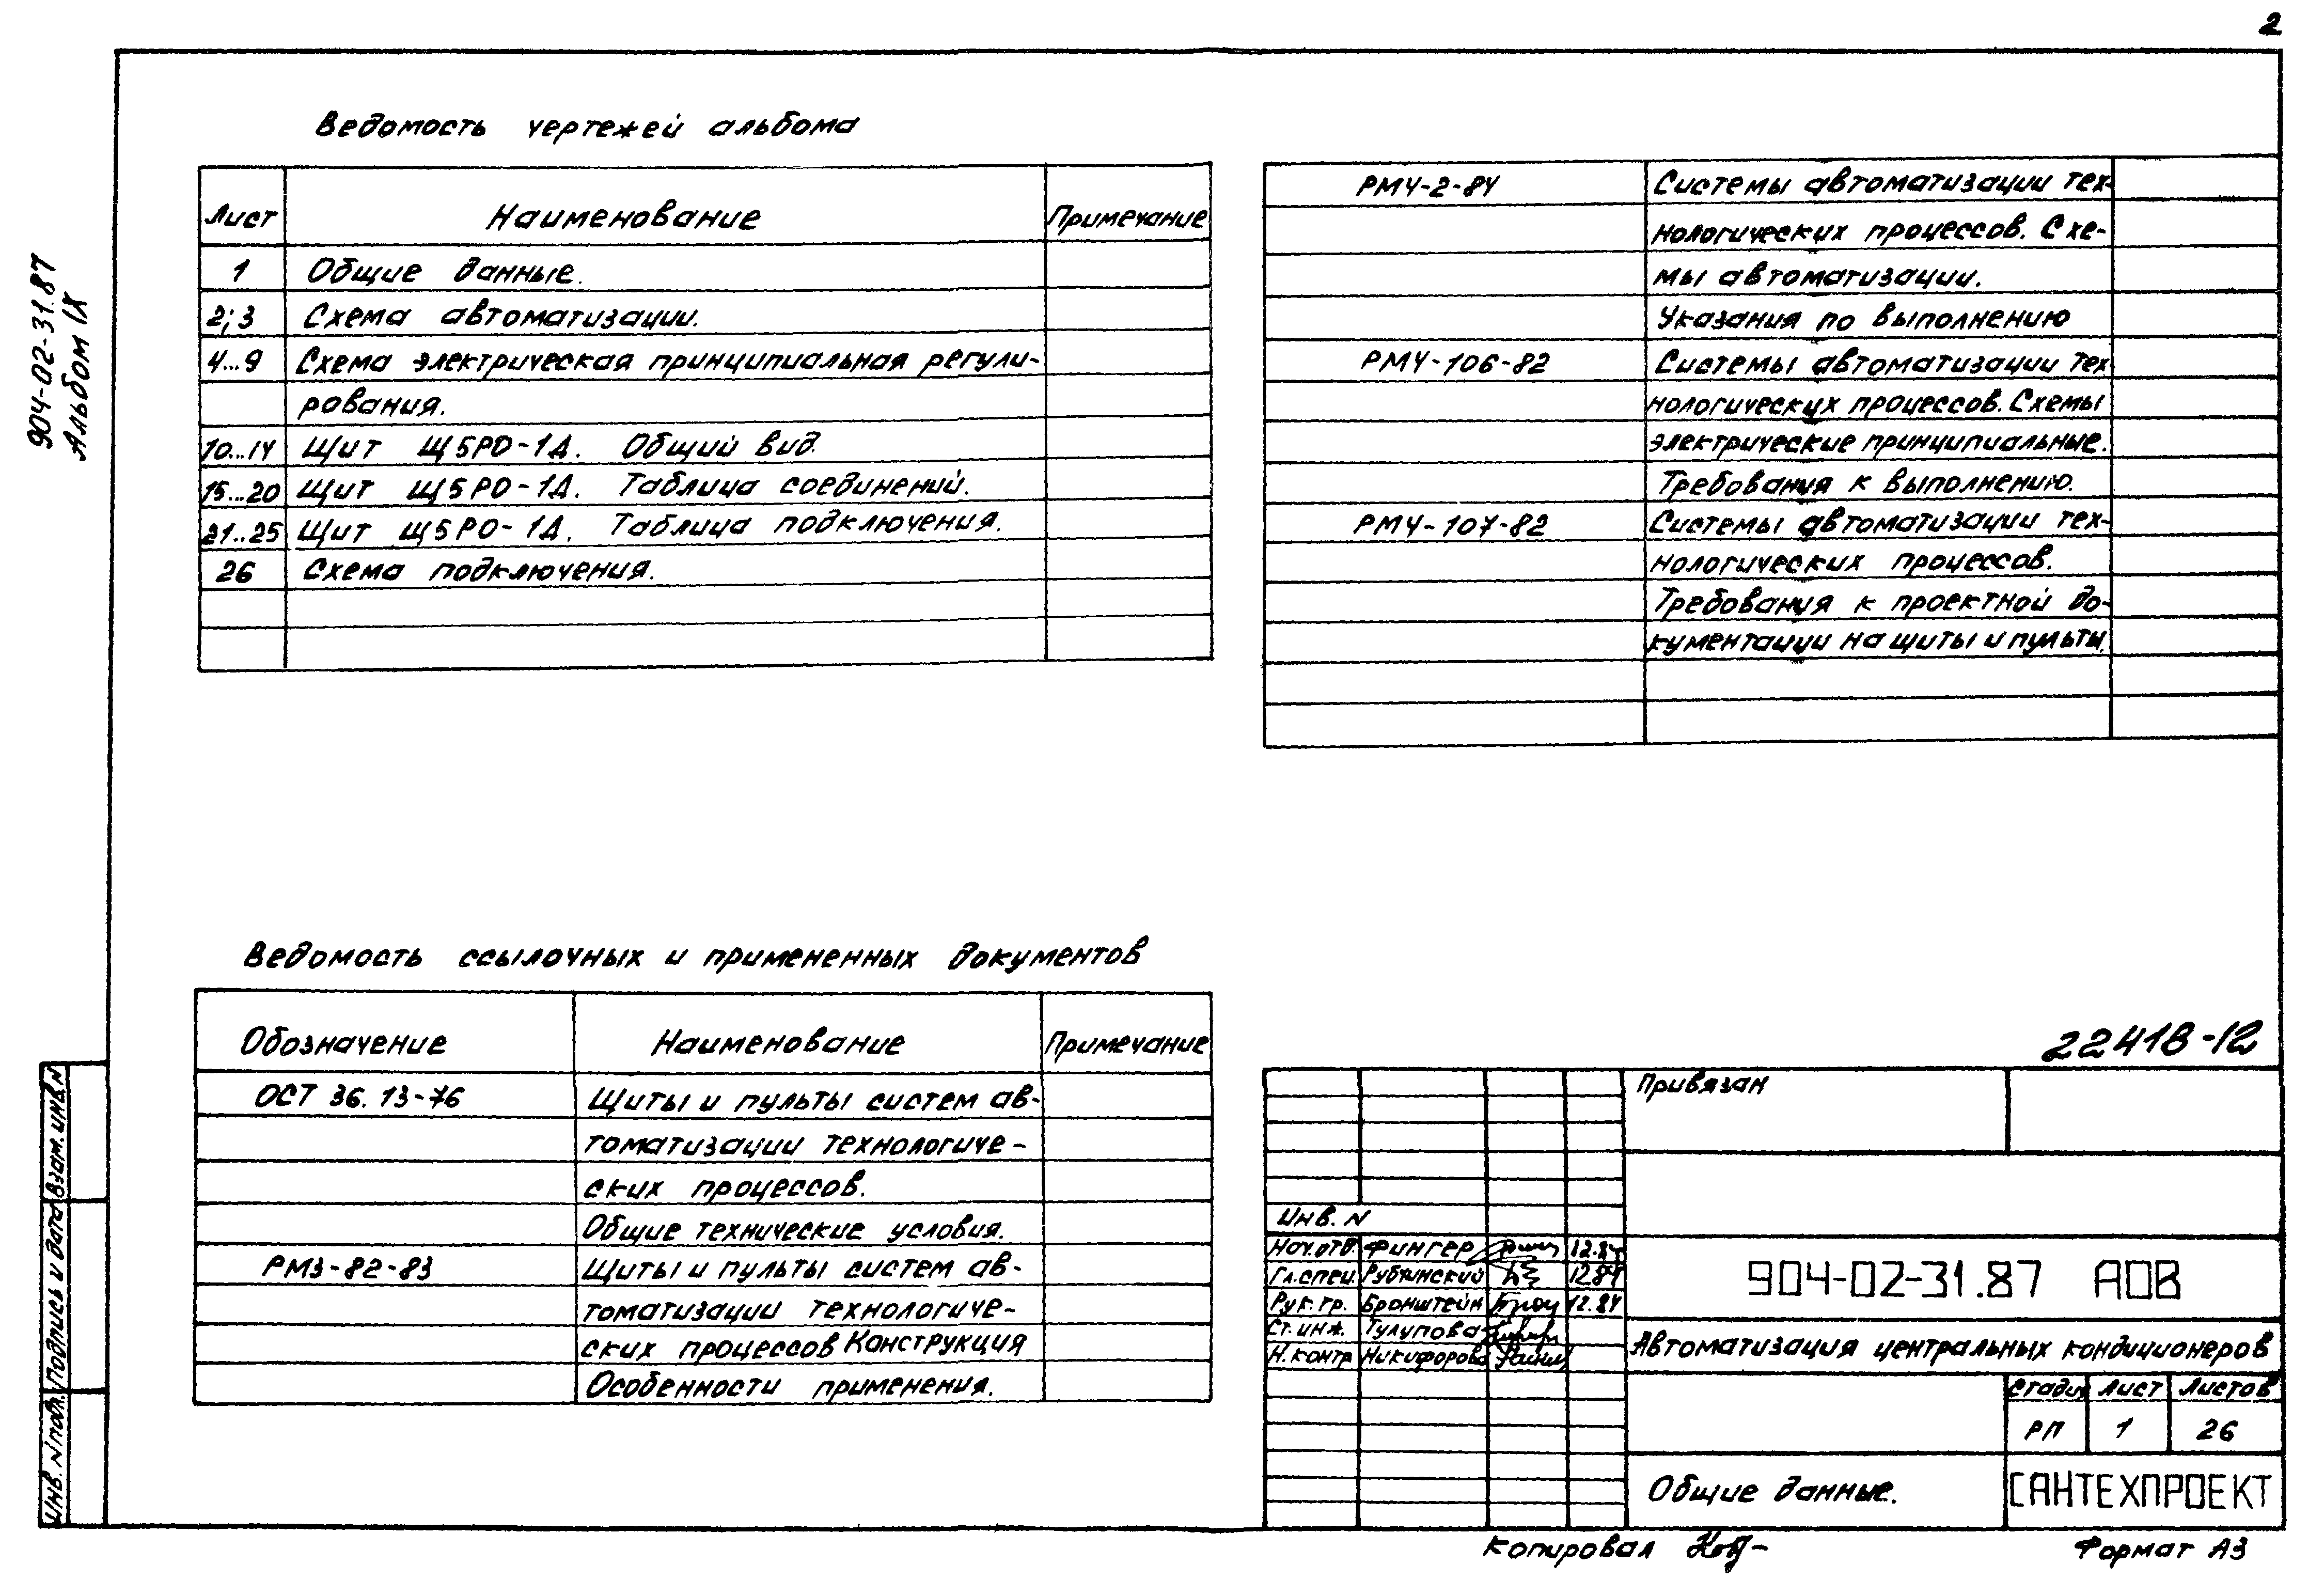 2
904-02-31.87
Альбом IX
Ведомость чертежей альбома
Лист Наименование Примечание
1 Общие данные.
2;3 Схема автоматизации.
4...9 Схема электрическая принципиальная регули-
рования.
10...14 Щит Щ5РО-1Д. Общий вид.
15...20 Щит Щ5РО-1Д. Таблица соединений.
21..25 Щит Щ5РО-1Д. Таблица подключения.
26 Схема подключения.
РМ4-2-84 Системы автоматизации тех-
нологических процессов. Схе-
мы автоматизации.
Указания по выполнению
РМ4-106-82 Системы автоматизации тех-
нологических процессов. Схемы
электрические принципиальные.
Требования к выполнению.
РМ4-107-82 Системы автоматизации тех-
нологических процессов.
Требования к проектной до-
кументации на щиты и пульты.
Ведомость ссылочных и примененных документов
Обозначение Наименование Примечание
ОСТ 36.13-76 Щиты и пульты систем ав-
томатизации технологиче-
ских процессов.
Общие технические условия.
РМ3-82-83 Щиты и пульты систем ав-
томатизации технологиче-
ских процессов Конструкция
Особенности применения.
22418-12
Привязан
Инв. N
Нач.отд. Фингер 12.84
Гл.спец. Рубчинский 12.84
Рук.гр. Бронштейн 12.84
Ст.инж. Тулупова
Н.контр Никифорова
904-02-31.87 АОВ
Автоматизация центральных кондиционеров
Стадия Лист Листов
РП 1 26
Общие данные.
САНТЕХПРОЕКТ
Инв. N подл. Подпись и дата Взам. инв. N
Копировал
Формат А3